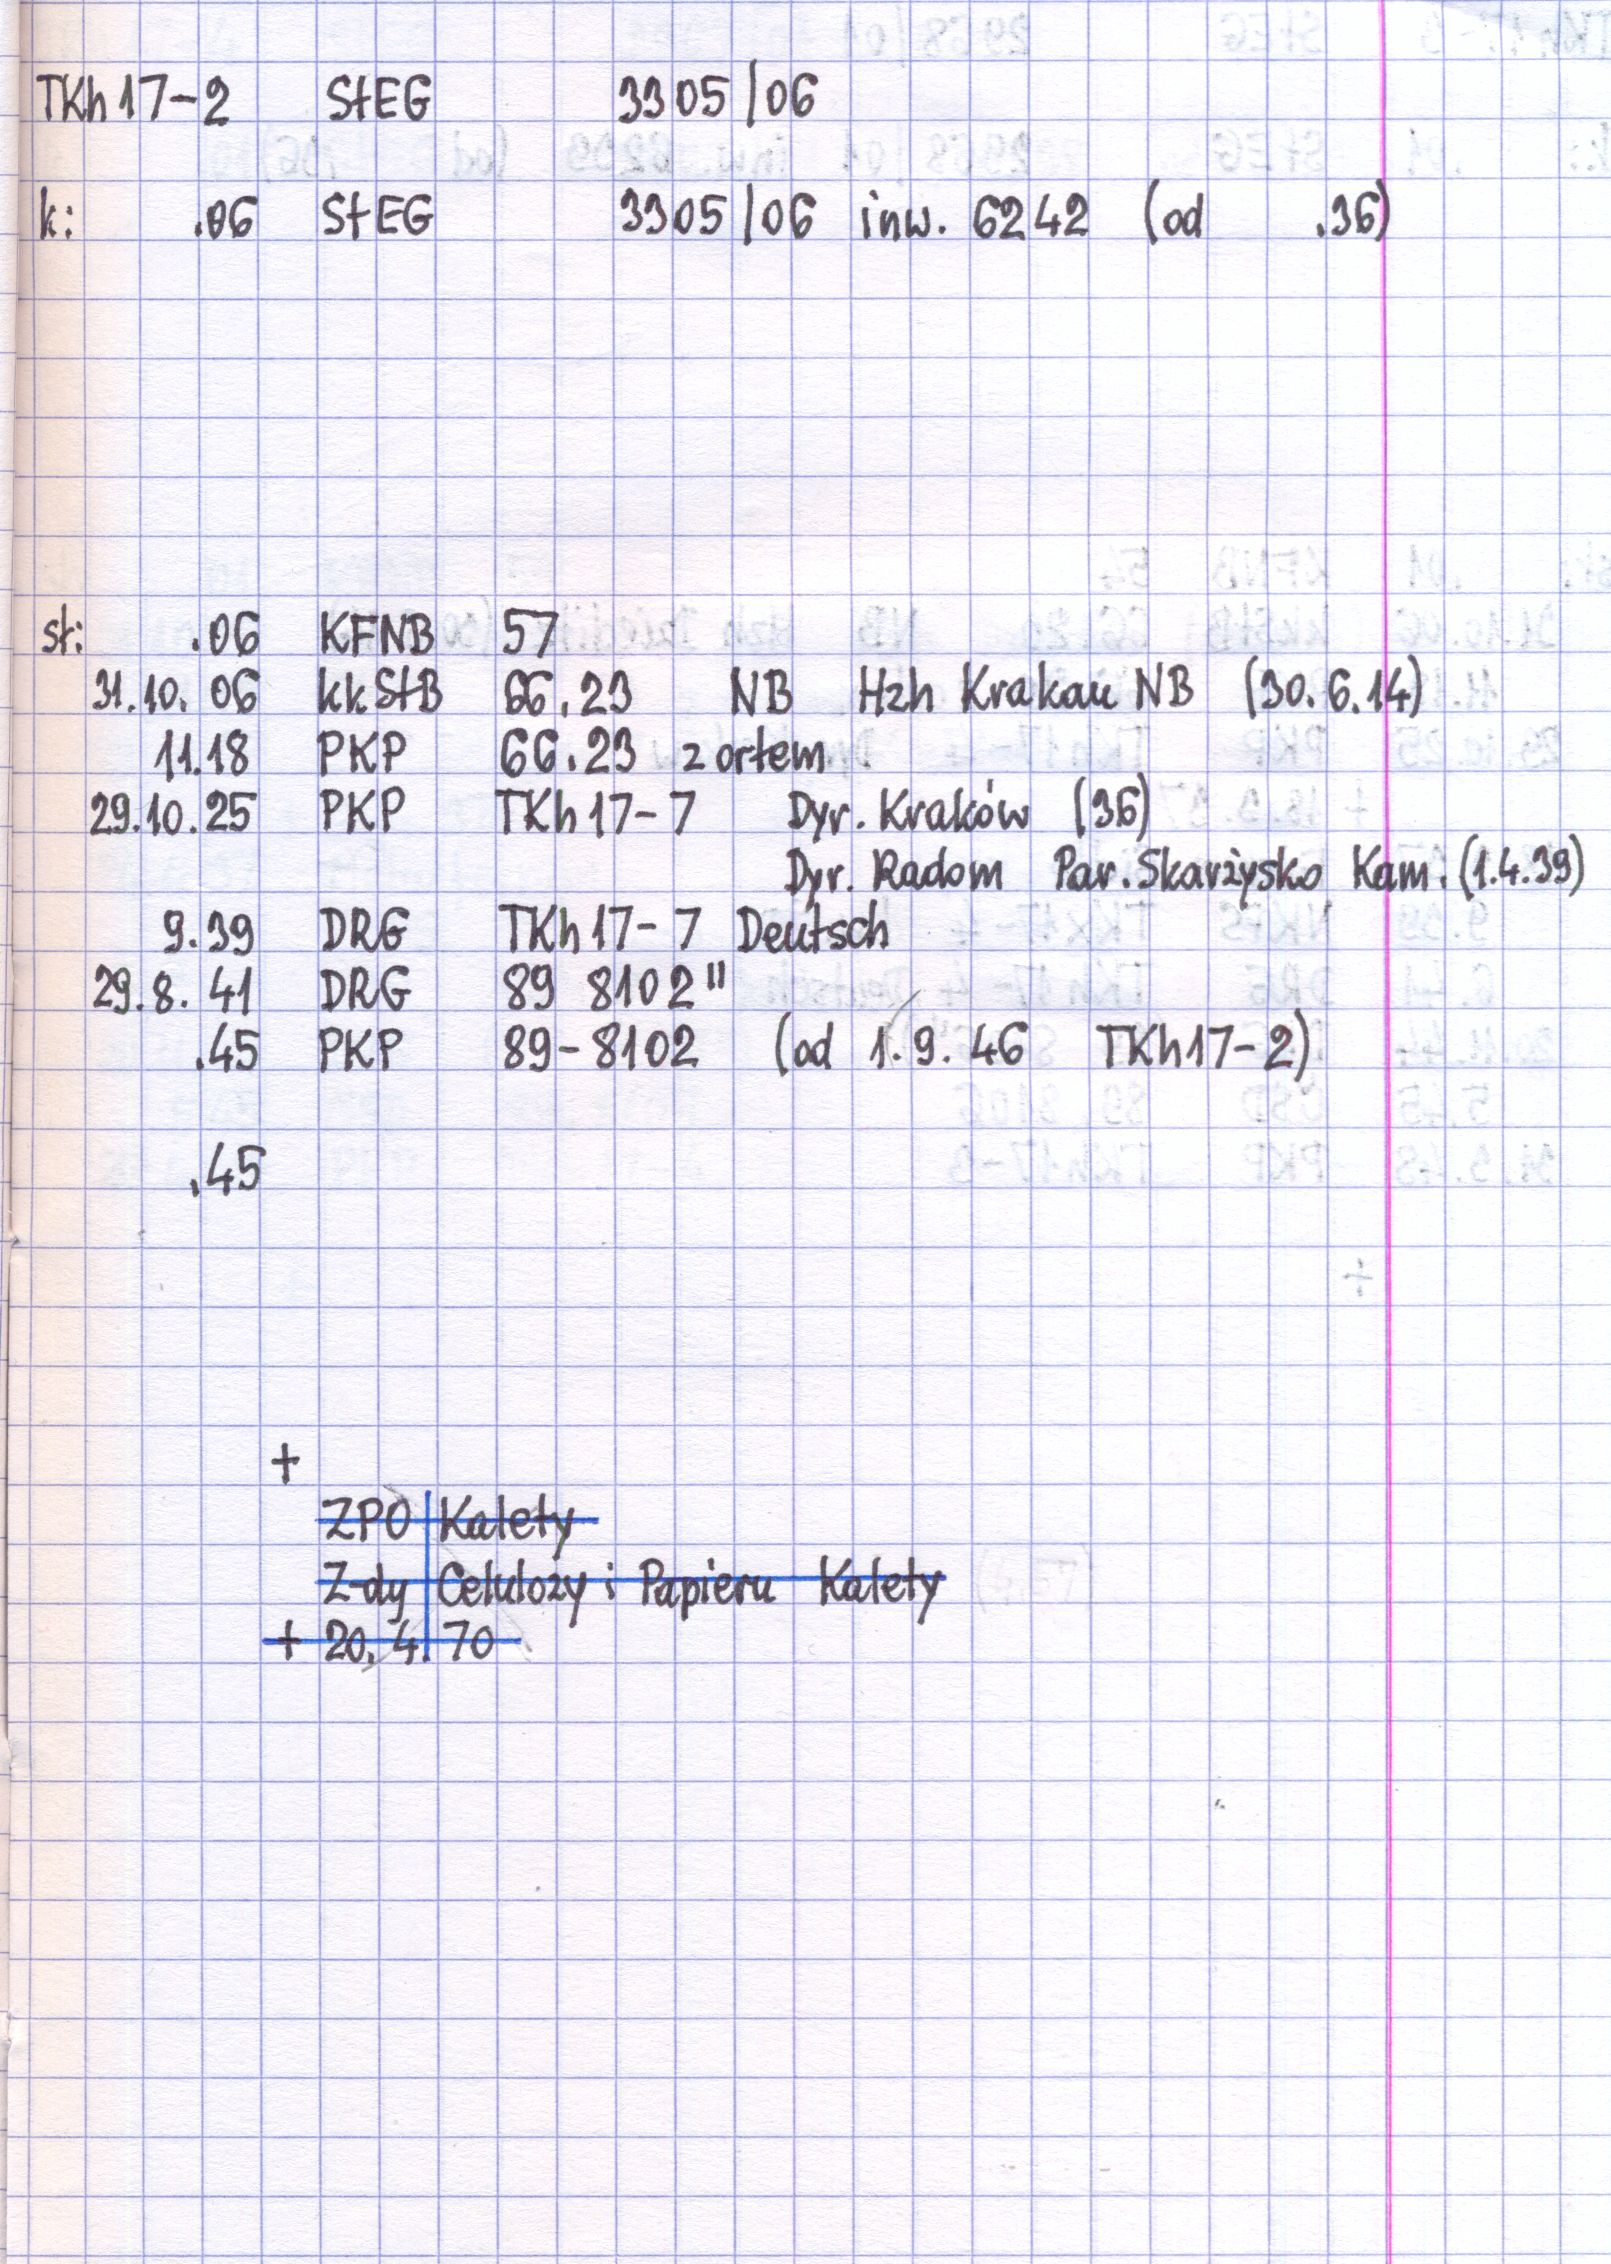 TKh 17-2 StEG 3305/06
k: .06 StEG 3305/06 inw. 6242 (od .36)
st: .06 KFNB 57
31.10.06 kkStB 66.23 NB Hzh Krakau NB (30.6.14)
11.18 PKP 66.23 z orłem
29.10.25 PKP TKh 17-7 Dyr. Kraków (36)
Dyr. Radom Par. Skarżysko Kam. (1.4.39)
9.39 DRG TKh 17-7 Deutsch
29.8.41 DRG 89 8102"
.45 PKP 89-8102 (od 1.9.46 TKh17-2)
.45
+
ZPO Kalety
Z-dy Celulozy i Papieru Kalety
+ 20.4.70